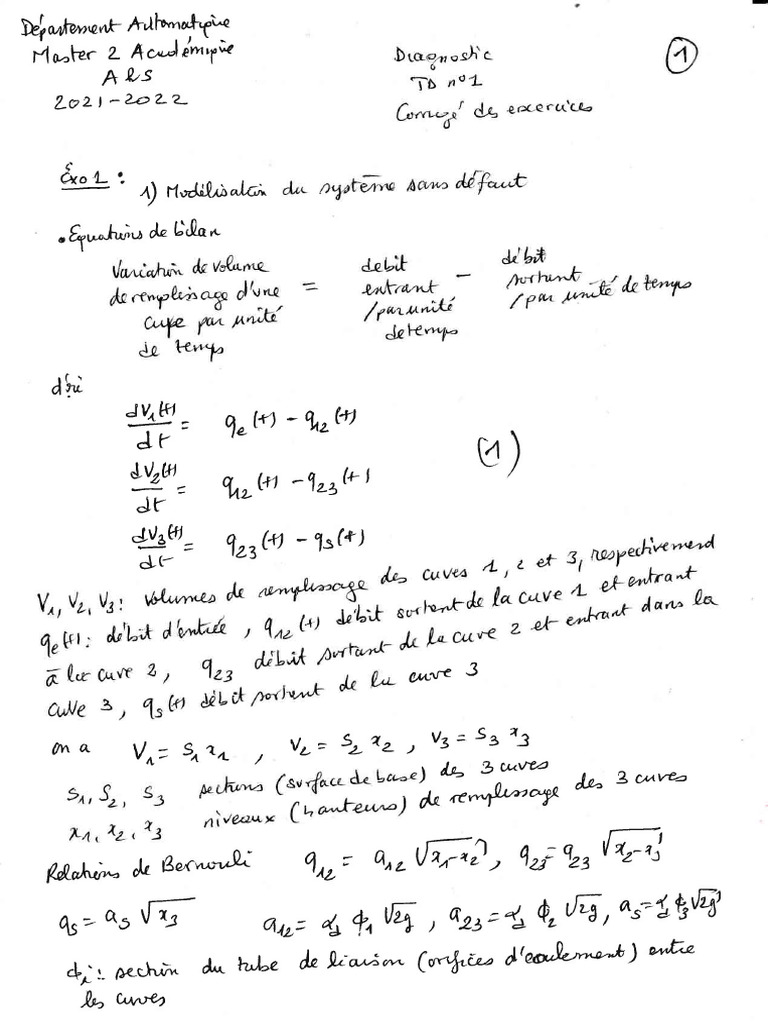 Département Automatique
Master 2 Académique
A&S
2021-2022
Diagnostic
TD n°1
Corrigé des exercices
1
Exo 1 : 1) Modélisation du système sans défaut
• Equations de bilan
Variation de volume de remplissage d'une cuve par unité de temps = debit entrant /par unité de temps − débit sortant /par unité de temps
d'où
dV₁(t)/dt = qe(t) − q₁₂(t)
dV₂(t)/dt = q₁₂(t) − q₂₃(t)
dV₃(t)/dt = q₂₃(t) − qs(t)
(1)
V₁, V₂, V₃ : volumes de remplissage des cuves 1, 2 et 3, respectivement
qe(t) : débit d'entrée, q₁₂(t) débit sortent de la cuve 1 et entrant
à la cuve 2, q₂₃ débit sortant de la cuve 2 et entrant dans la
cuve 3, qs(t) débit sortent de la cuve 3
on a V₁ = S₁ x₁, V₂ = S₂ x₂, V₃ = S₃ x₃
S₁, S₂, S₃ sections (surface de base) des 3 cuves
x₁, x₂, x₃ niveaux (hauteurs) de remplissage des 3 cuves
Relations de Bernouli q₁₂ = a₁₂ √(x₁-x₂), q₂₃ = q₂₃ √(x₂-x₃)
qs = as √x₃ a₁₂ = αd ϕ₁ √2g, a₂₃ = αd ϕ₂ √2g, as = αd ϕ₃ √2g
ϕi : section du tube de liaison (orifices d'écoulement) entre
les cuves